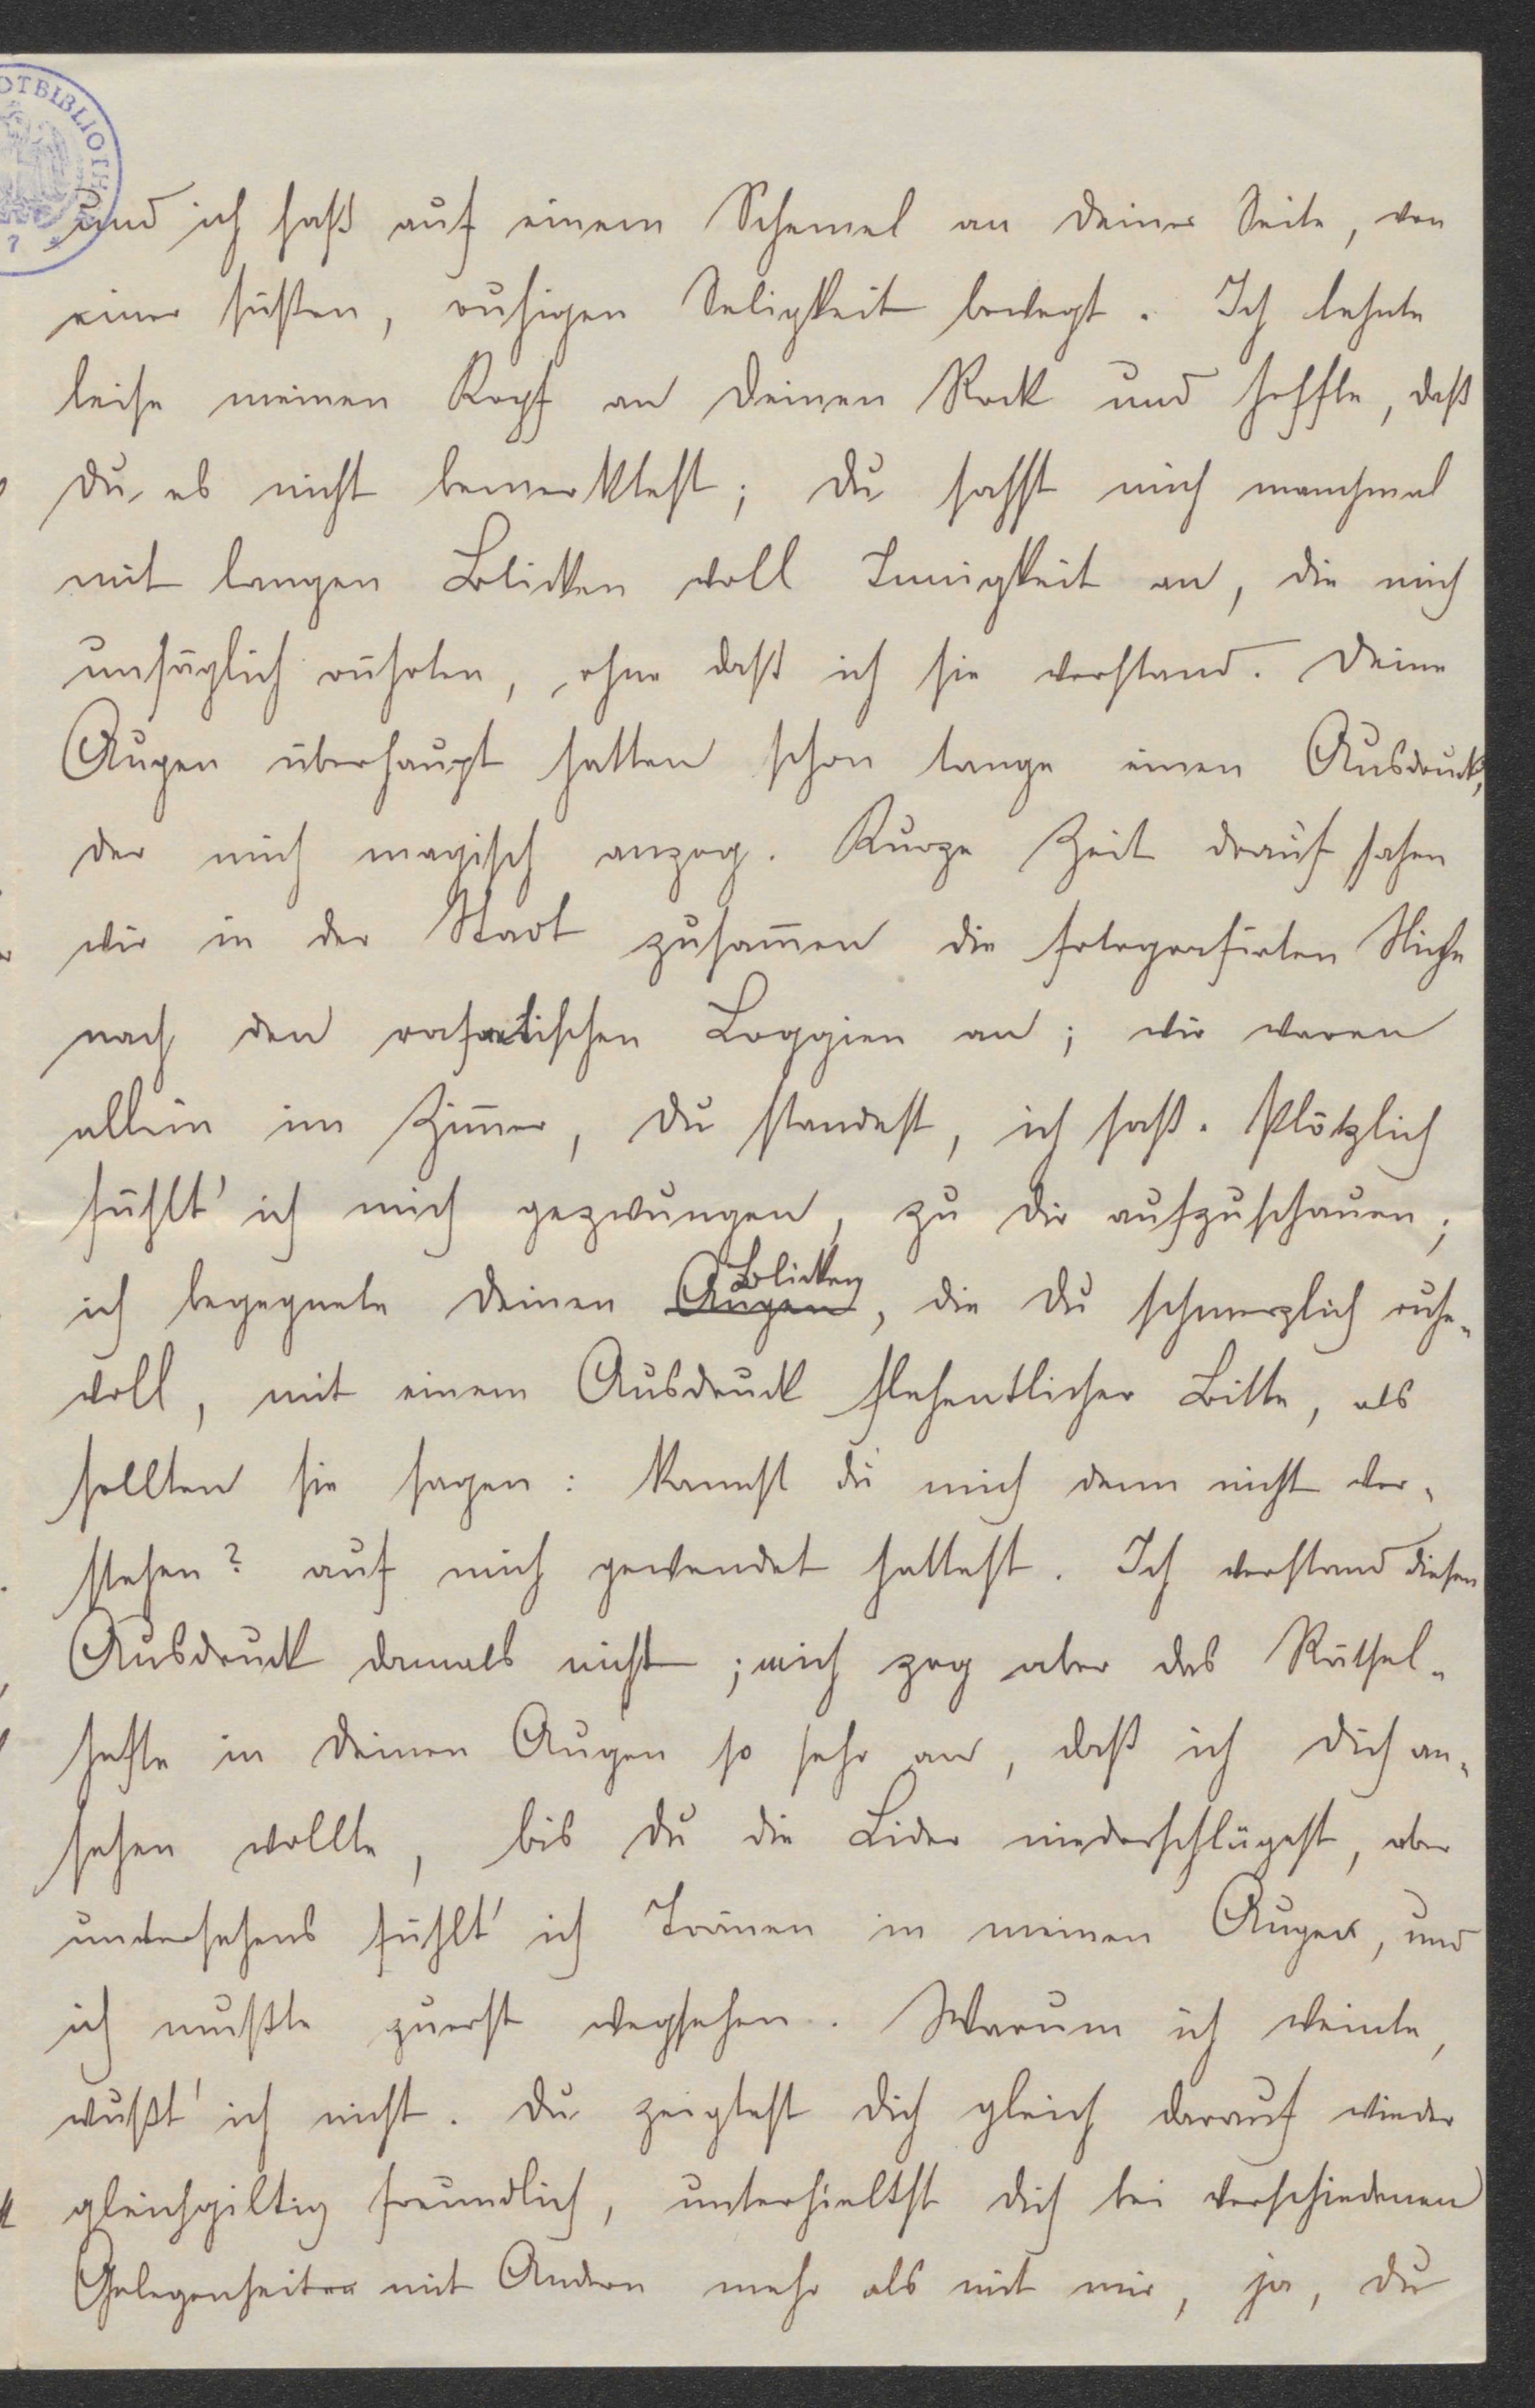 OTBIBLIOTH
7 *
und ich saß auf einem Schemel an Deiner Seite, von
einer süßen, ruhigen Seligkeit bewegt. Ich lehnte
leise meinen Kopf an Deinen Rock und hoffte, daß
Du es nicht bemerktest; Du sahst mich manchmal
mit langen Blicken voll Innigkeit an, die mich
unsäglich rührten, ohne daß ich sie verstand. Deine
Augen überhaupt hatten schon lange einen Ausdruck,
der mich magisch anzog. Kurze Zeit drauf sahen
wir in der Stadt zusam̅en die fotografirten Stiche
nach den rafaelischen Loggien an; wir waren
allein im Zim̅er, Du standest, ich saß. Plötzlich
fühlt' ich mich gezwungen, zu Dir aufzuschauen;
ich begegnete Deinen Augen Blicken, die Du schmerzlich ruhe-
voll, mit einem Ausdruck flehentlicher Bitte, als
sollten sie sagen: kannst du mich denn nicht ver-
stehen? auf mich gewendet hattest. Ich verstand diesen
Ausdruck damals nicht; mich zog aber das Rätsel-
hafte in Deinen Augen so sehr an, daß ich Dich an-
sehen wollte, bis Du die Lider niederschlügest, aber
unversehens fühlt' ich Tränen in meinen Augen, und
ich mußte zuerst wegsehen. Warum ich weinte,
wußt' ich nicht. Du zeigtest Dich gleich darauf wieder
gleichgiltig freundlich, unterhieltst Dich bei verschiedenen
Gelegenheiten mit Andern mehr als mit mir, ja, Du